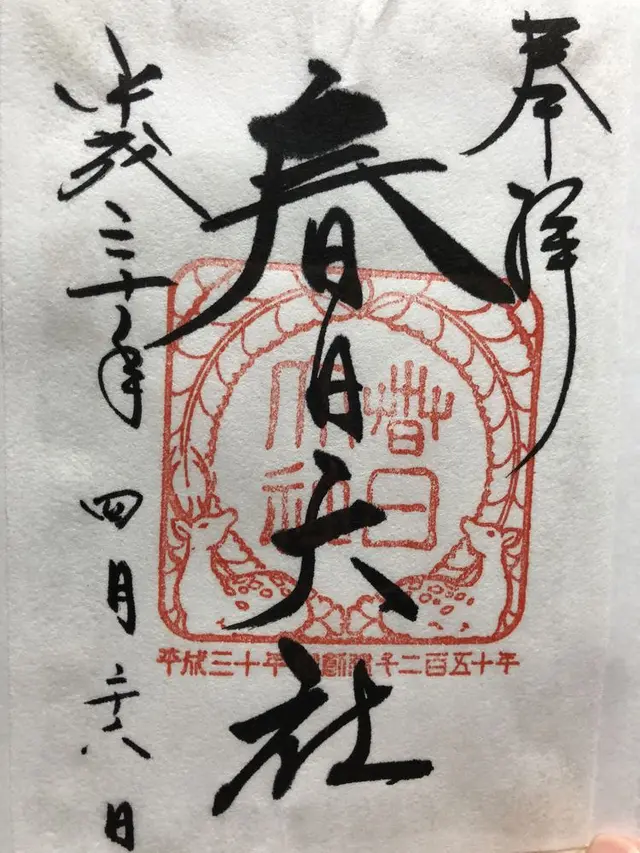 奉拝
春日大社
平成三十年四月二十八日
春日
大社
平成三十年御創建千二百五十年